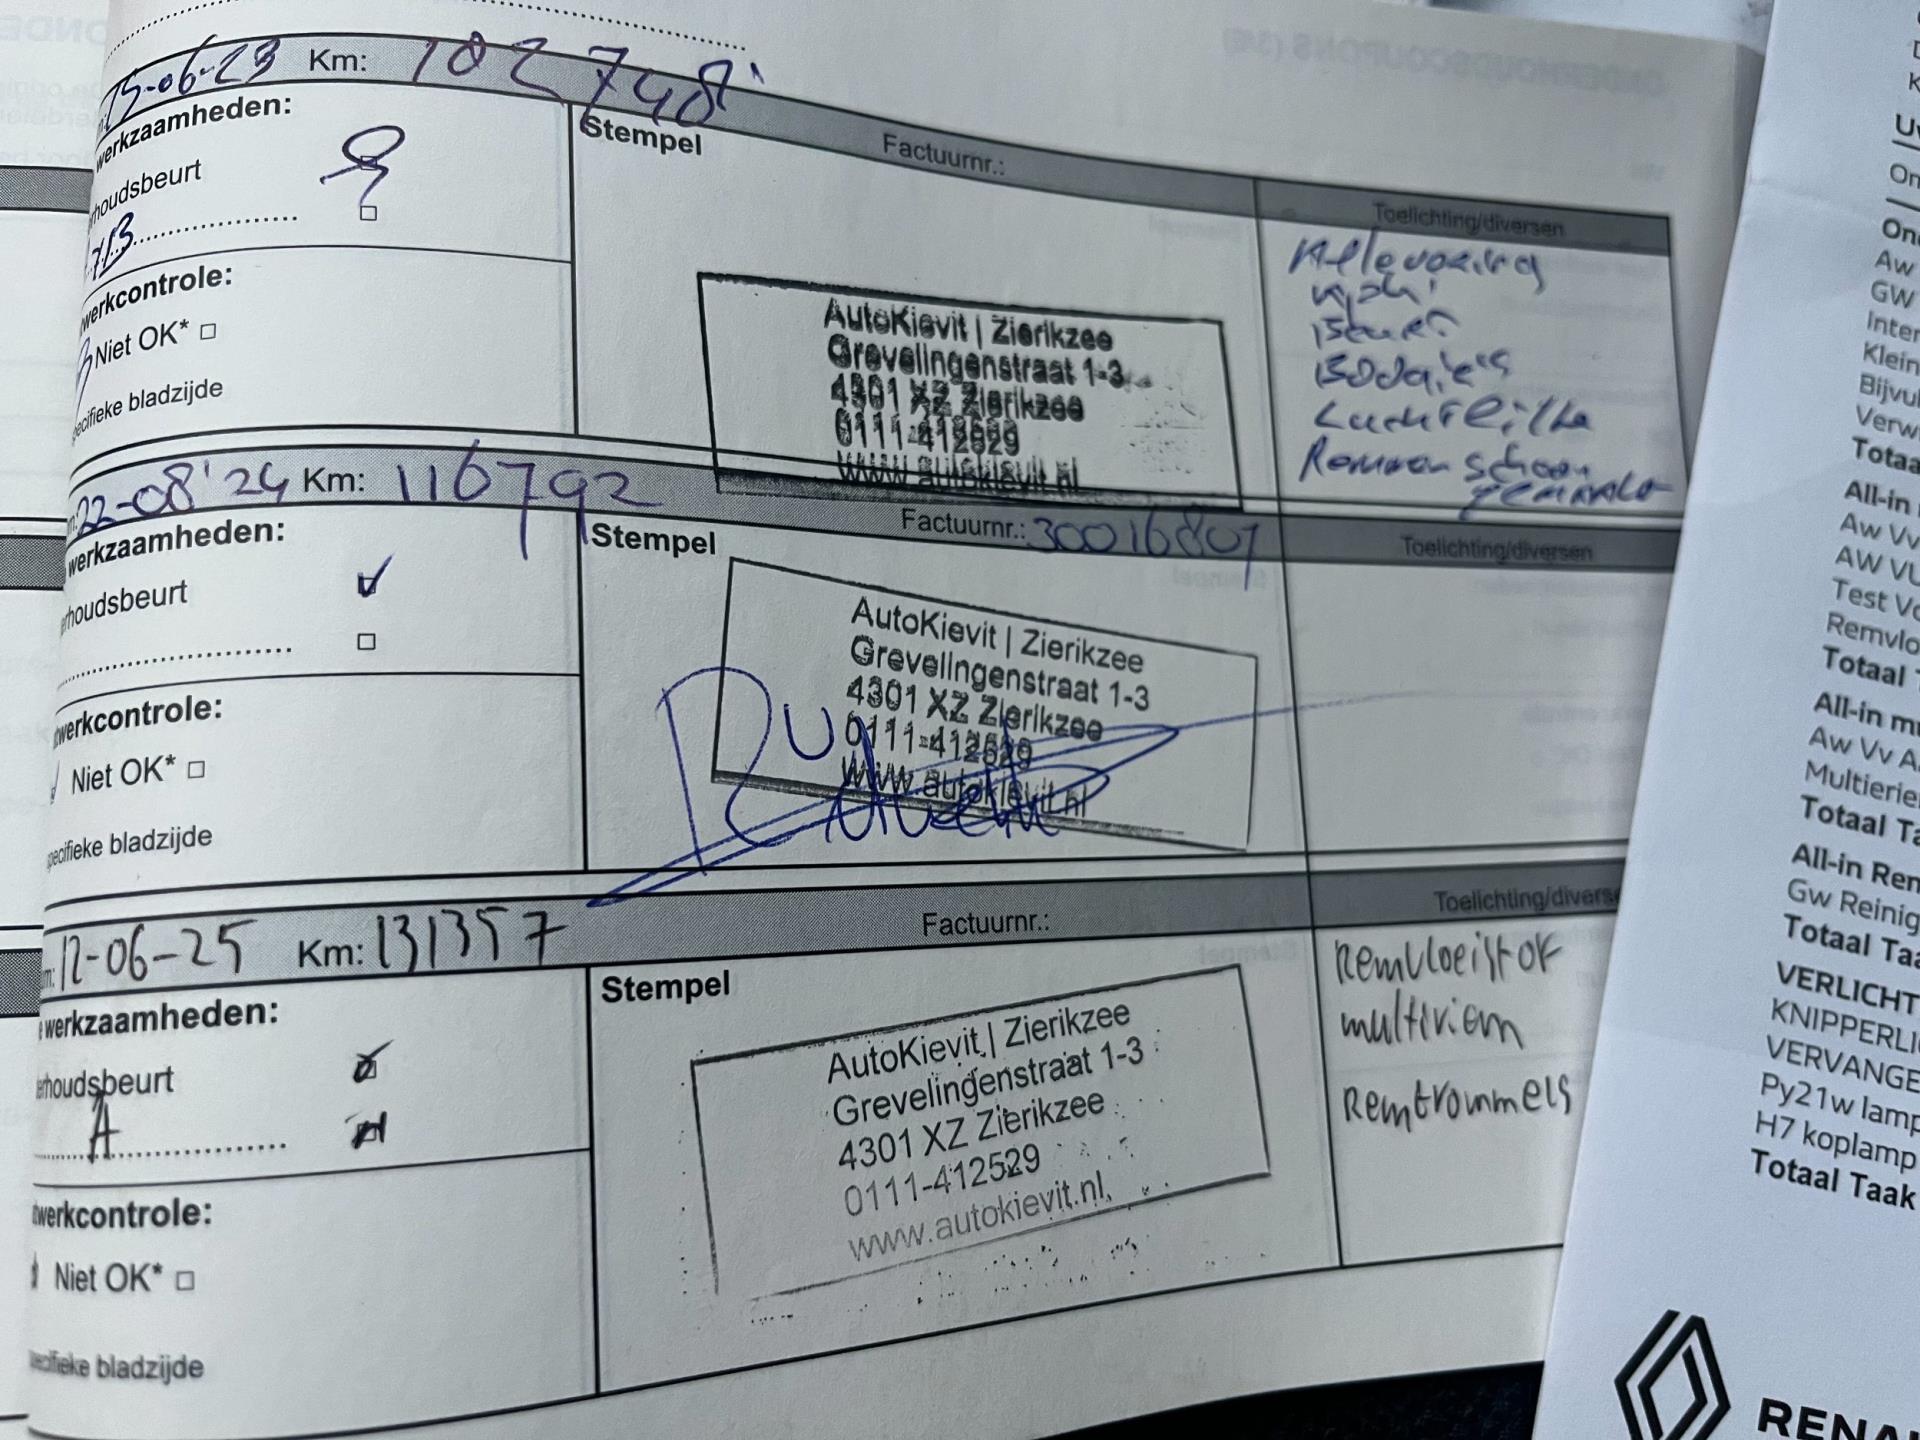 15-06-23 Km: 102748
werkzaamheden:
rhoudsbeurt
Stempel
Factuurnr.:
Toelichting/diversen
Aflevering
Beurt
Remmen schoon
gemaakt
AutoKievit | Zierikzee
Grevelingenstraat 1-3
4301 XZ Zierikzee
0111-412529
www.autokievit.nl
twerkcontrole:
Niet OK*
pecifieke bladzijde
22-08'24 Km: 116792
werkzaamheden:
rhoudsbeurt
Stempel
Factuurnr.: 30016807
Toelichting/diversen
AutoKievit | Zierikzee
Grevelingenstraat 1-3
4301 XZ Zierikzee
0111-412529
www.autokievit.nl
twerkcontrole:
Niet OK*
specifieke bladzijde
12-06-25 Km: 131357
werkzaamheden:
erhoudsbeurt
A
Stempel
Factuurnr.:
Toelichting/diverse
Remvloeistof
multiriem
Remtrommels
AutoKievit | Zierikzee
Grevelingenstraat 1-3
4301 XZ Zierikzee
0111-412529
www.autokievit.nl
twerkcontrole:
Niet OK*
specifieke bladzijde
On
Aw
GW
Inter
Klein
Bijvul
Verw
Totaa
All-in
Aw Vv
AW VL
Test Vo
Remvlo
Totaal T
All-in mu
Aw Vv A
Multierie
Totaal Ta
All-in Rem
Gw Reinig
Totaal Taa
VERLICHT
KNIPPERLI
VERVANGE
Py21w lamp
H7 koplamp
Totaal Taak
RENA